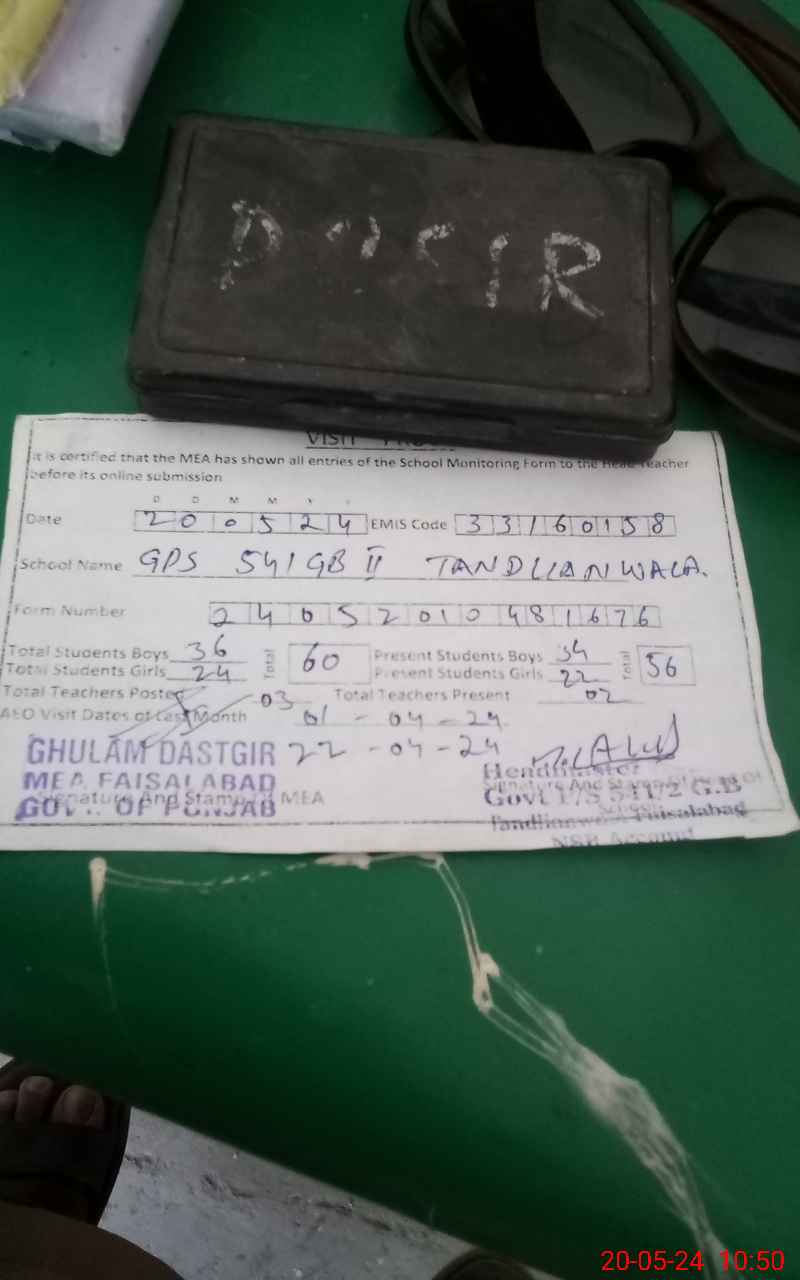 VISIT
It is certified that the MEA has shown all entries of the School Monitoring Form to the Head Teacher
before its online submission
D D M M Y
Date 200524 EMIS Code 33160158
School Name GPS 541 GB II TANDLIANWALA.
Form Number 2405201048 1676
Total Students Boys 36 Total 60 Present Students Boys 34 Total 56
Total Students Girls 24 Present Students Girls 22
Total Teachers Posted 03 Total Teachers Present 02
AEO Visit Dates of Last Month 01-04-24
22-04-24
GHULAM DASTGIR
MEA FAISALABAD
GOVT. OF PUNJAB
Signature And Stamp Of MEA
Headmaster
Signature And Stamp Of
Govt P/S 541/2 G.B
Tandlianwala Faisalabad
NSB Account
20-05-24 10:50